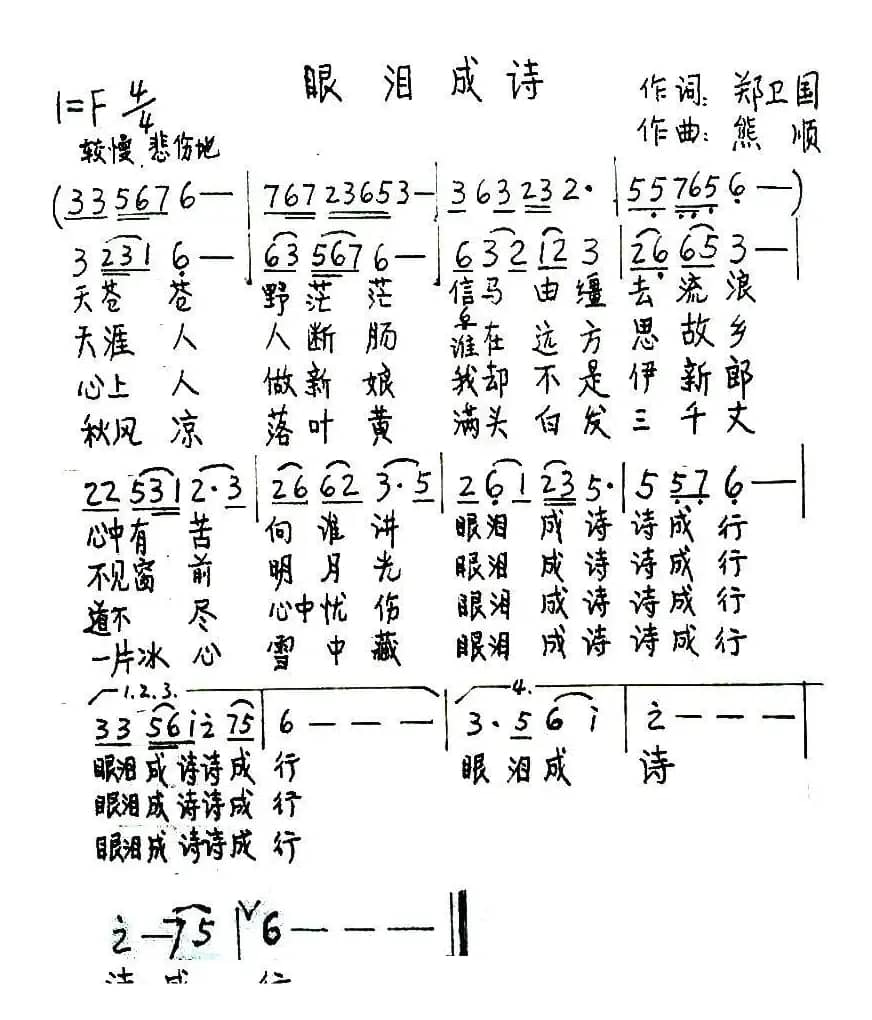 眼泪成诗
1=F 4/4
作词：郑卫国
较慢 悲伤地
作曲：熊 顺
(3 3 5 6 7 6 — | 7 6 7 2 3 6 5 3 — | 3 6 3 2 3 2 · | 5 5 7 6 5 6 — )
3 2 3 1 6 — | 6 3 5 6 7 6 — | 6 3 2 1 2 3 | 2 6 6 5 3 — |
天苍 苍 野茫 茫 信马 由 缰 去 流 浪
天涯 人 人断 肠 谁在 远 方 思 故 乡
心上 人 做新 娘 我却 不 是 伊 新 郎
秋风 凉 落叶 黄 满头 白 发 三 千 丈
2 2 5 3 1 2 · 3 | 2 6 6 2 3 · 5 | 2 6 1 2 3 5 · | 5 5 7 6 — |
心中有 苦 向 谁 讲 眼泪 成 诗 诗 成 行
不见窗 前 明 月 光 眼泪 成 诗 诗 成 行
道不 尽 心中忧 伤 眼泪 成 诗 诗 成 行
一片冰 心 雪 中 藏 眼泪 成 诗 诗 成 行
1. 2. 3. 4.
3 3 5 6 i 2 7 5 | 6 — — — | 3 · 5 6 i | 2 — — — |
眼泪 成 诗诗 成 行 眼 泪 成 诗
眼泪 成 诗诗 成 行
眼泪 成 诗诗 成 行
2 — 7 5 | 6 — — — ‖
诗 成 行